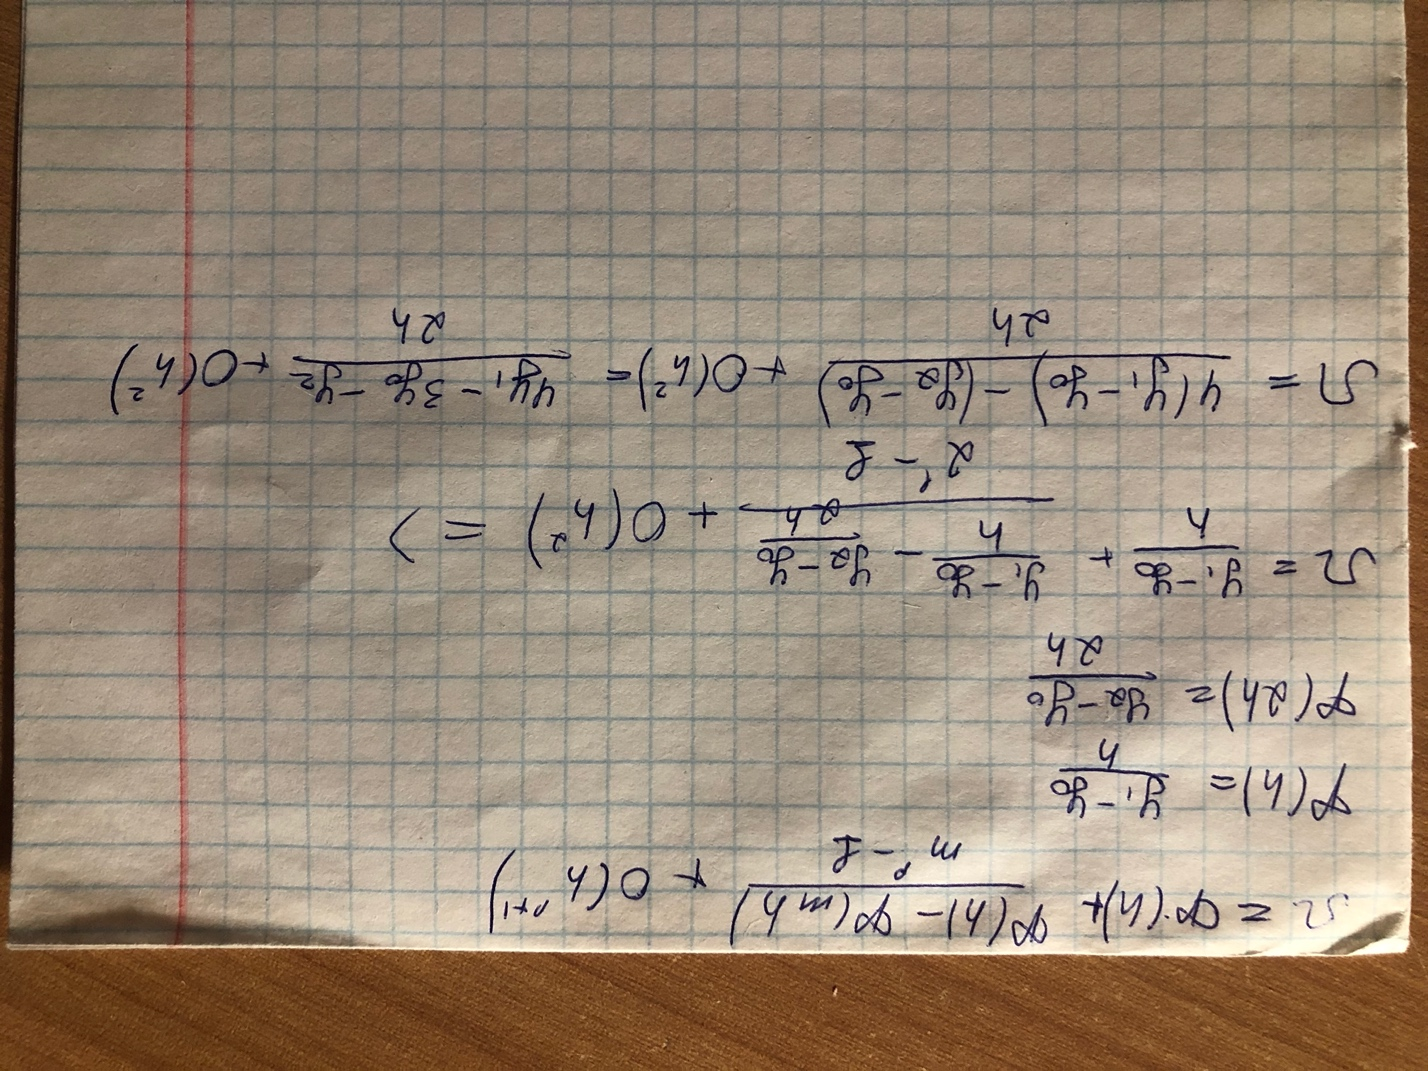 Ω = φ(h) + \frac{φ(h) - φ(mh)}{m^p - 1} + O(h^{p+1})
φ(h) = \frac{y_1 - y_0}{h}
φ(2h) = \frac{y_2 - y_0}{2h}
Ω = \frac{y_1 - y_0}{h} + \frac{\frac{y_1 - y_0}{h} - \frac{y_2 - y_0}{2h}}{2^1 - 1} + O(h^2) =>
Ω = \frac{4(y_1 - y_0) - (y_2 - y_0)}{2h} + O(h^2) = \frac{4y_1 - 3y_0 - y_2}{2h} + O(h^2)